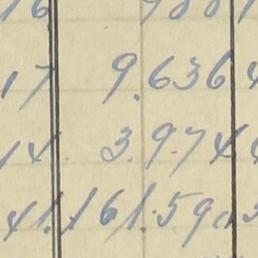 16 980
17 9.636 4
14 3.974
41.161.590